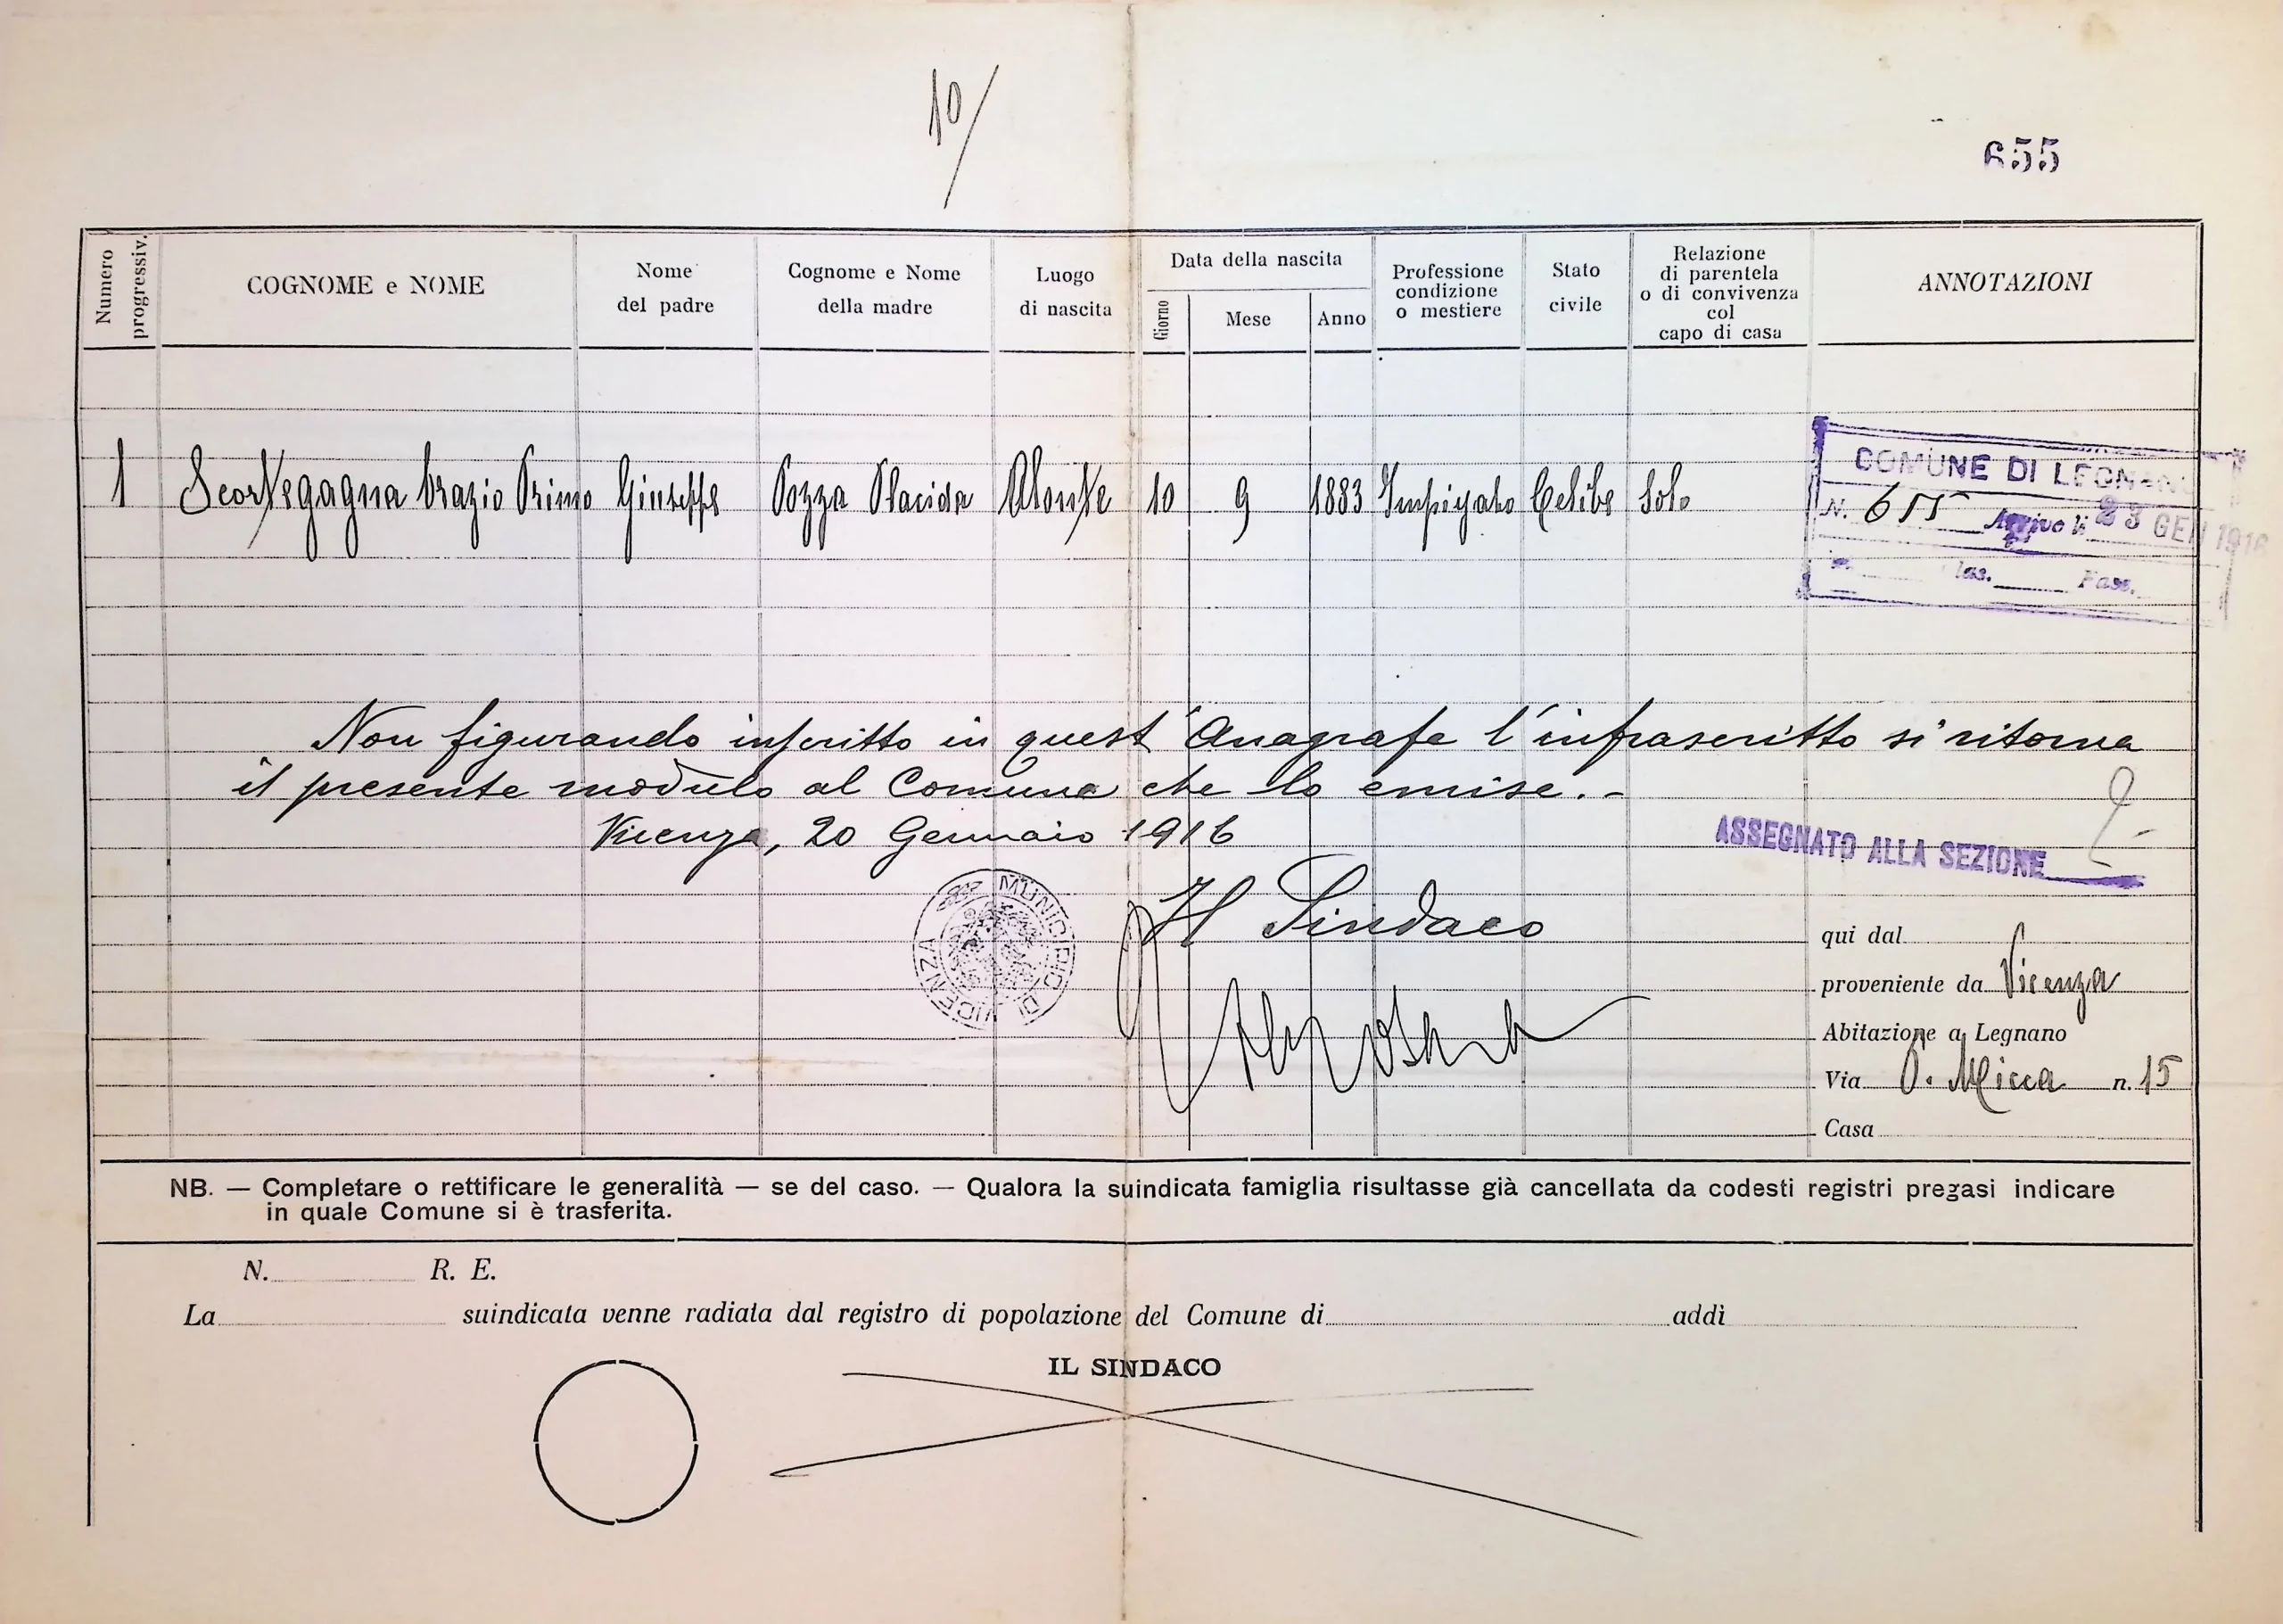 10/
655
Numero progressiv.
COGNOME e NOME
Nome del padre
Cognome e Nome della madre
Luogo di nascita
Data della nascita
Giorno
Mese
Anno
Professione condizione o mestiere
Stato civile
Relazione di parentela o di convivenza col capo di casa
ANNOTAZIONI
1 Scortegagna Orazio Primo Giuseppe Pozza Placida Alonte 10 9 1883 Impiegato Celibe Solo
COMUNE DI LEGNANO
N. 655 Arrivo li 23 GEN 1916
Clas. Fasc.
Non figurando inscritto in quest'Anagrafe l'infrascritto si ritorna
il presente modulo al Comune che lo emise.-
Vicenza, 20 Gennaio 1916
ASSEGNATO ALLA SEZIONE
MUNICIPIO DI VICENZA
Il Sindaco
qui dal
proveniente da Vicenza
Abitazione a Legnano
Via P. Micca n. 15
Casa
NB. — Completare o rettificare le generalità — se del caso. — Qualora la suindicata famiglia risultasse già cancellata da codesti registri pregasi indicare
in quale Comune si è trasferita.
N. R. E.
La suindicata venne radiata dal registro di popolazione del Comune di addì
IL SINDACO